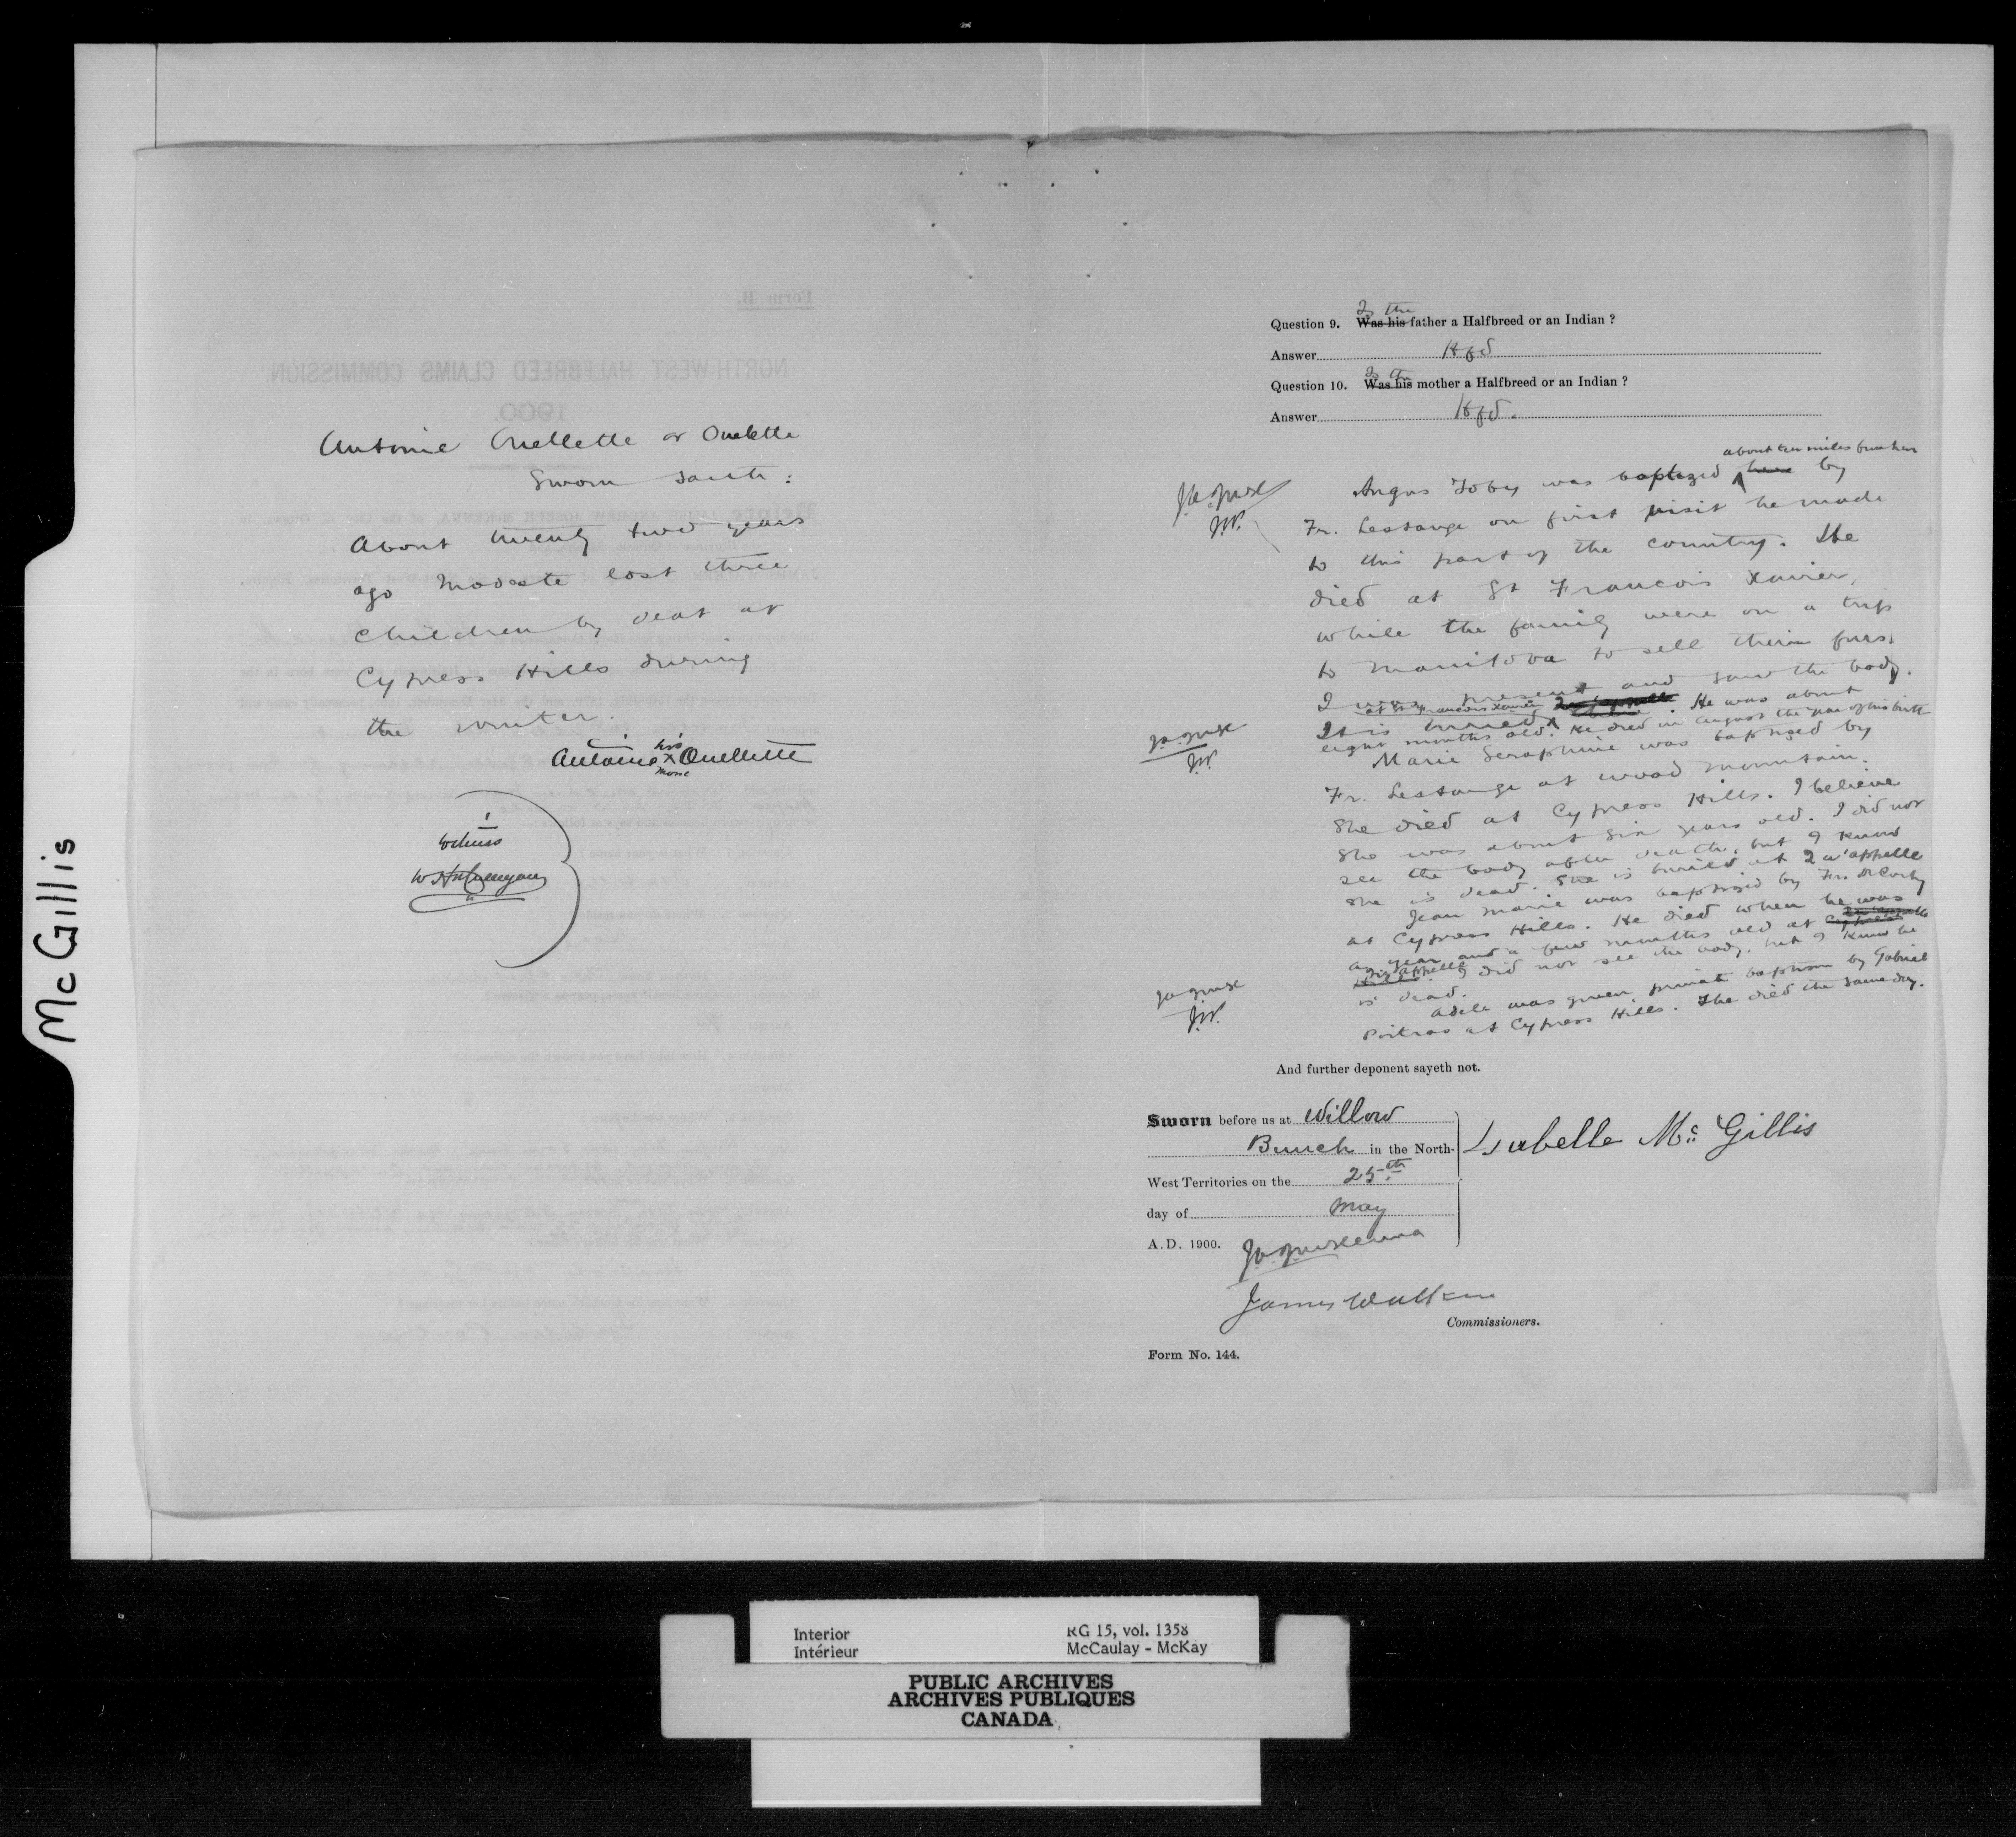 McGillis
Antoine Ouellette or Ouelette
Sworn saith:
About twenty two years
ago Modeste lost three
children by deat at
Cypress Hills during
the winter.
his
Antoine X Ouellette
mark
Witness
Question 9. Was his Is the father a Halfbreed or an Indian?
Answer Hfbd
Question 10. Was his Is the mother a Halfbreed or an Indian?
Answer Hfbd.
about ten miles from here
Angus Toby was baptized here by
Fr. Lestange on first visit he made
to this part of the country. He
died at St Francois Xavier,
while the family were on a trip
to Manitoba to sell their furs.
I was present and saw the body.
at St Francois Xavier Qu'appelle
It is buried there. He was about
eight months old. He died in August the year of his birth
Marie Seraphine was baptized by
Fr. Lestange at Wood Mountain.
She died at Cypress Hills. I believe
she was about six years old. I did not
see the body after death, but I know
she is dead. She is buried at Qu'appelle
Jean Marie was baptized by Fr. DeCorby
at Cypress Hills. He died when he was
a year and a few months old at Cypress Qu'appelle
Hills Qu'appelle I did not see the body, but I know he
is dead.
Adele was given private baptism by Gabriel
Poitras at Cypress Hills. She died the same day.
J.W.
J.W.
J.W.
And further deponent sayeth not.
Sworn before us at Willow
Bunch in the North-
West Territories on the 25th
day of May
A.D. 1900.
Isabelle Mc Gillis
J.A.J. McKenna
James Walker
Commissioners.
Form No. 144.
Interior
Intérieur
RG 15, vol. 1358
McCaulay - McKay
PUBLIC ARCHIVES
ARCHIVES PUBLIQUES
CANADA